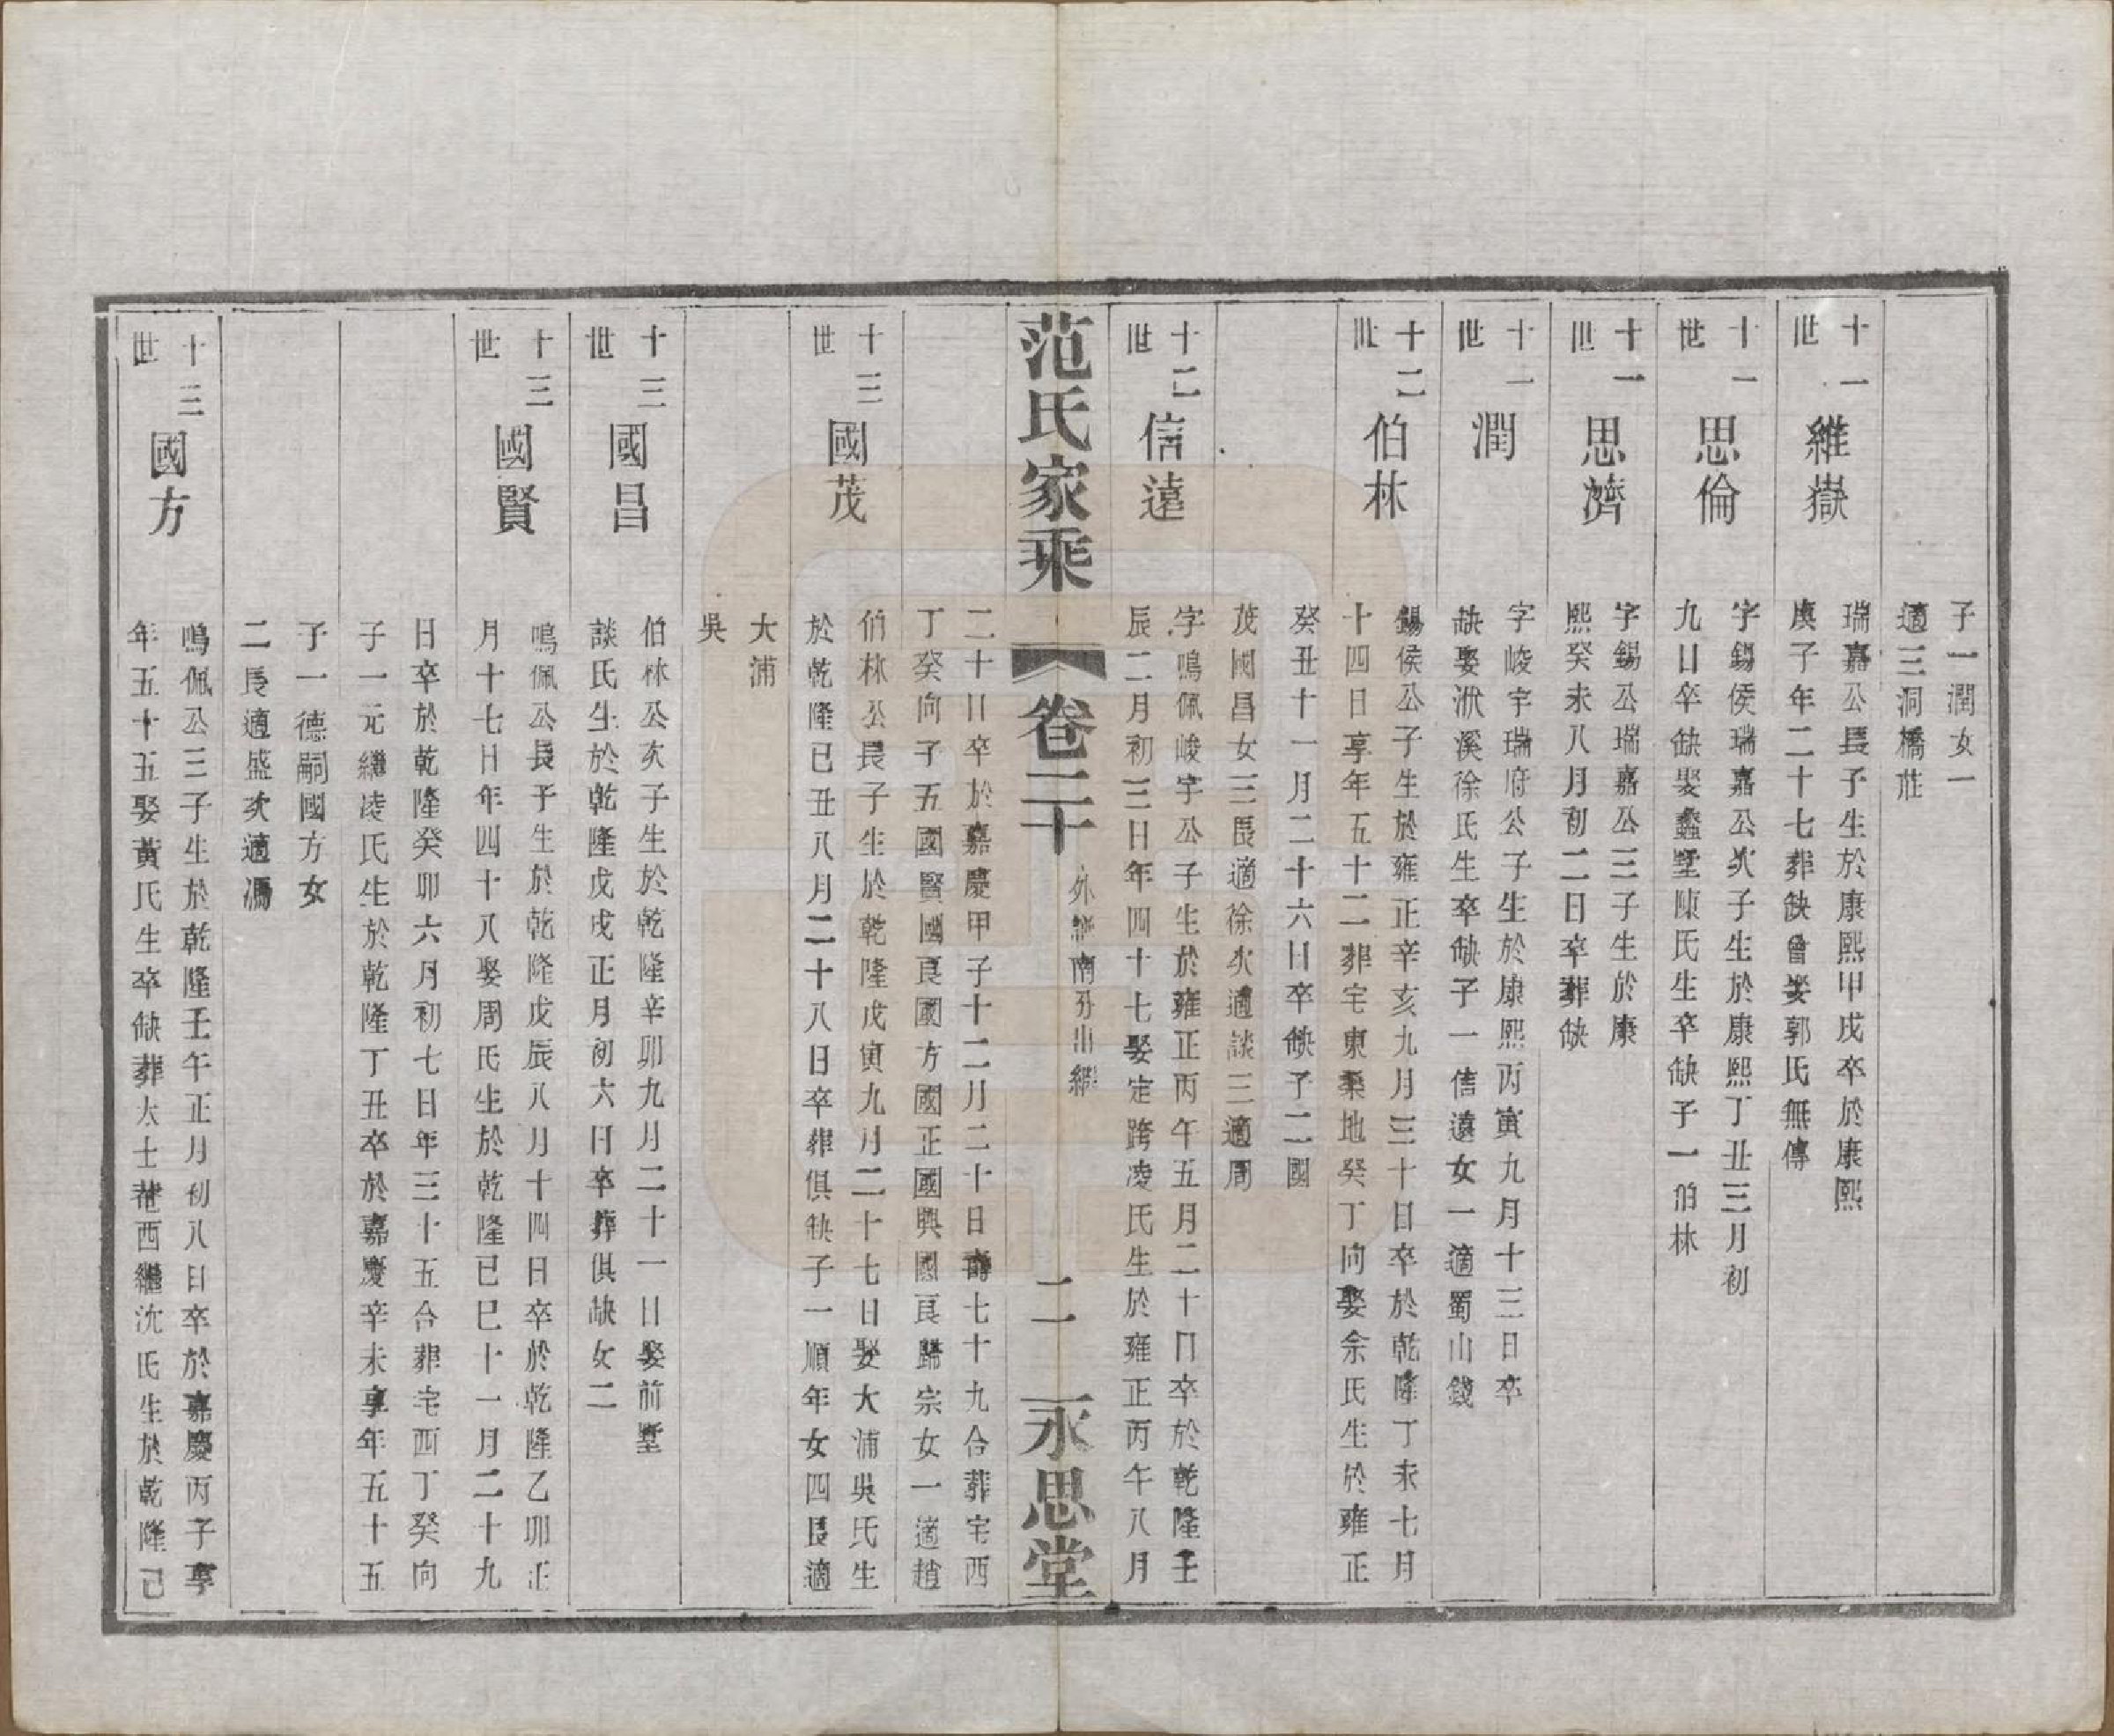 子一潤女一
適三洞橋莊
十一
世
維嶽
瑞嘉公長子生於康熙甲戌卒於康熙
庚子年二十七葬缺會娶郭氏無傳
十一
世
思倫
字錫侯瑞嘉公次子生於康熙丁丑三月初
九日卒缺娶蠡墅陳氏生卒缺子一伯林
十一
世
思濟
字錫公瑞嘉公三子生於康
熙癸未八月初二日卒葬缺
十一
世
潤
字峻宇瑞府公子生於康熙丙寅九月十三日卒
缺娶洑溪徐氏生卒缺子一信遠女一適蜀山錢
十二
世
伯林
錫侯公子生於雍正辛亥九月三十日卒於乾隆丁未七月
十四日享年五十二葬宅東桑地癸丁向娶余氏生於雍正
癸丑十一月二十六日卒缺子二國
茂國昌女三長適徐次適談三適周
十二
世
信遠
字鳴佩峻宇公子生於雍正丙午五月二十日卒於乾隆壬
辰二月初三日年四十七娶定跨凌氏生於雍正丙午八月
范氏家乘
卷二十
外譜南分山網
二
永思堂
二十日卒於嘉慶甲子十二月二十日壽七十九合葬宅西
丁癸向子五國賢國良國方國正國興國良歸宗女一適趙
十三
世
國茂
伯林公長子生於乾隆戊寅九月二十七日娶大浦吳氏生
於乾隆己丑八月二十八日卒葬俱缺子一順年女四長適
大浦
吳
十三
世
國昌
伯林公次子生於乾隆辛卯九月二十一日娶前墅
談氏生於乾隆戊戌正月初六日卒葬俱缺女二
十三
世
國賢
鳴佩公長子生於乾隆戊辰八月十四日卒於乾隆乙卯正
月十七日年四十八娶周氏生於乾隆已巳十一月二十九
日卒於乾隆癸卯六月初七日年三十五合葬宅西丁癸向
子一元繼凌氏生於乾隆丁丑卒於嘉慶辛未享年五十五
子一德嗣國方女
二長適盛次適馮
十三
世
國方
鳴佩公三子生於乾隆壬午正月初八日卒於嘉慶丙子享
年五十五娶黃氏生卒缺葬大士菴西繼沈氏生於乾隆己